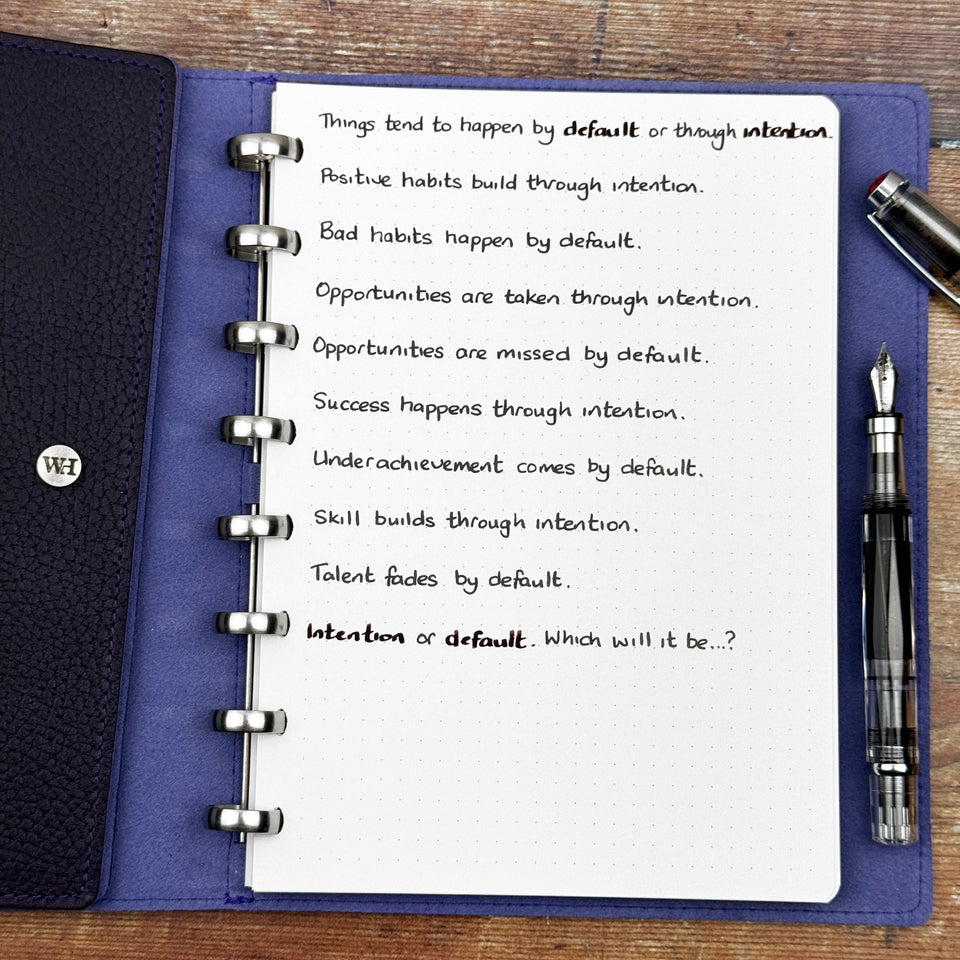 Things tend to happen by default or through intention.
Positive habits build through intention.
Bad habits happen by default.
Opportunities are taken through intention.
Opportunities are missed by default.
Success happens through intention.
Underachievement comes by default.
WH
Skill builds through intention.
Talent fades by default.
Intention or default. Which will it be...?